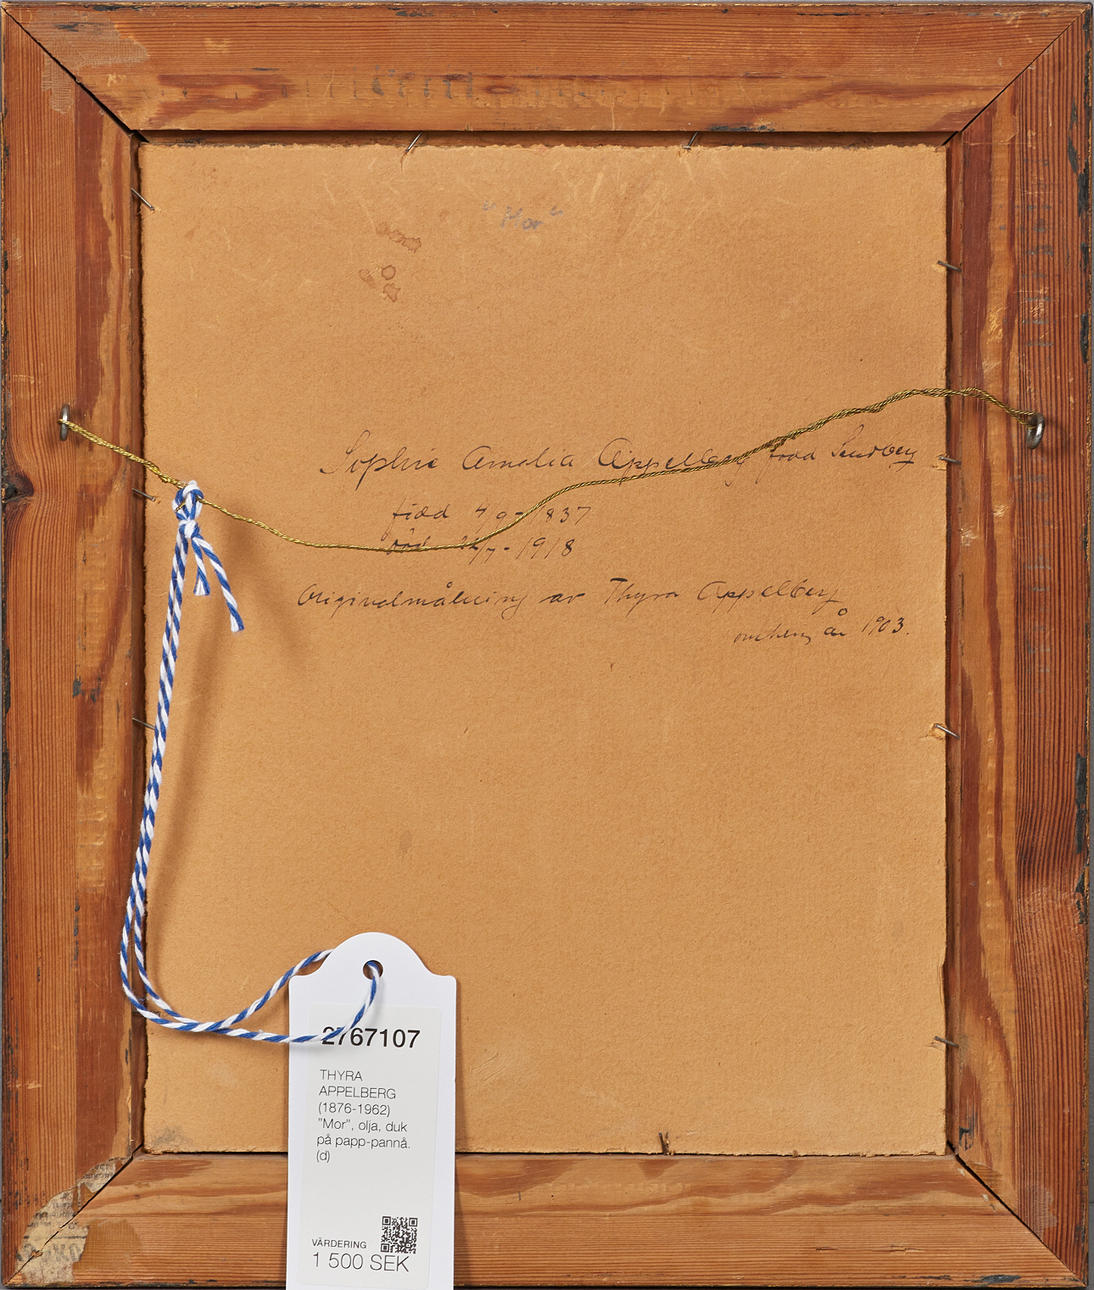 "Mor"
Sophie Amalia Appelberg född Sundberg
född 4/9-1837
död 24/7-1918
Originalmålning av Thyra Appelberg
omkring år 1903.
2767107
THYRA
APPELBERG
(1876-1962)
"Mor", olja, duk
på papp-pannå.
(d)
VÄRDERING
1 500 SEK